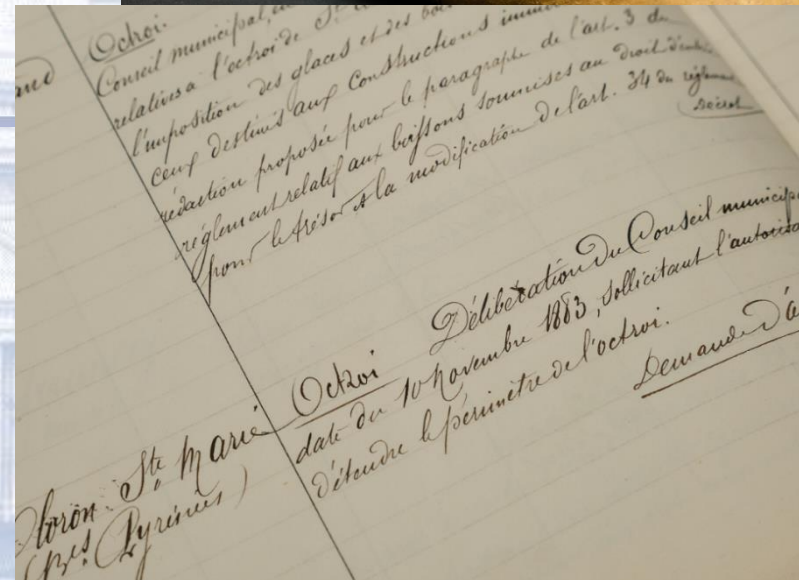 and
Octroi.
Conseil municipal, en
relatives à l'octroi de St
l'imposition des glaces et des boi
ceux destinés aux constructions imm
rédaction proposée pour le paragraphe de l'art. 3 du
règlement relatif aux boissons soumises au droit d'entrée
pour le trésor et la modification de l'art. 34 du règlem
Décret
Oloron-Ste Marie
(Bses Pyrénées)
Octroi Délibération du Conseil municip
date du 10 novembre 1883, sollicitant l'autoris
d'étendre le périmètre de l'octroi.
Demande d'a